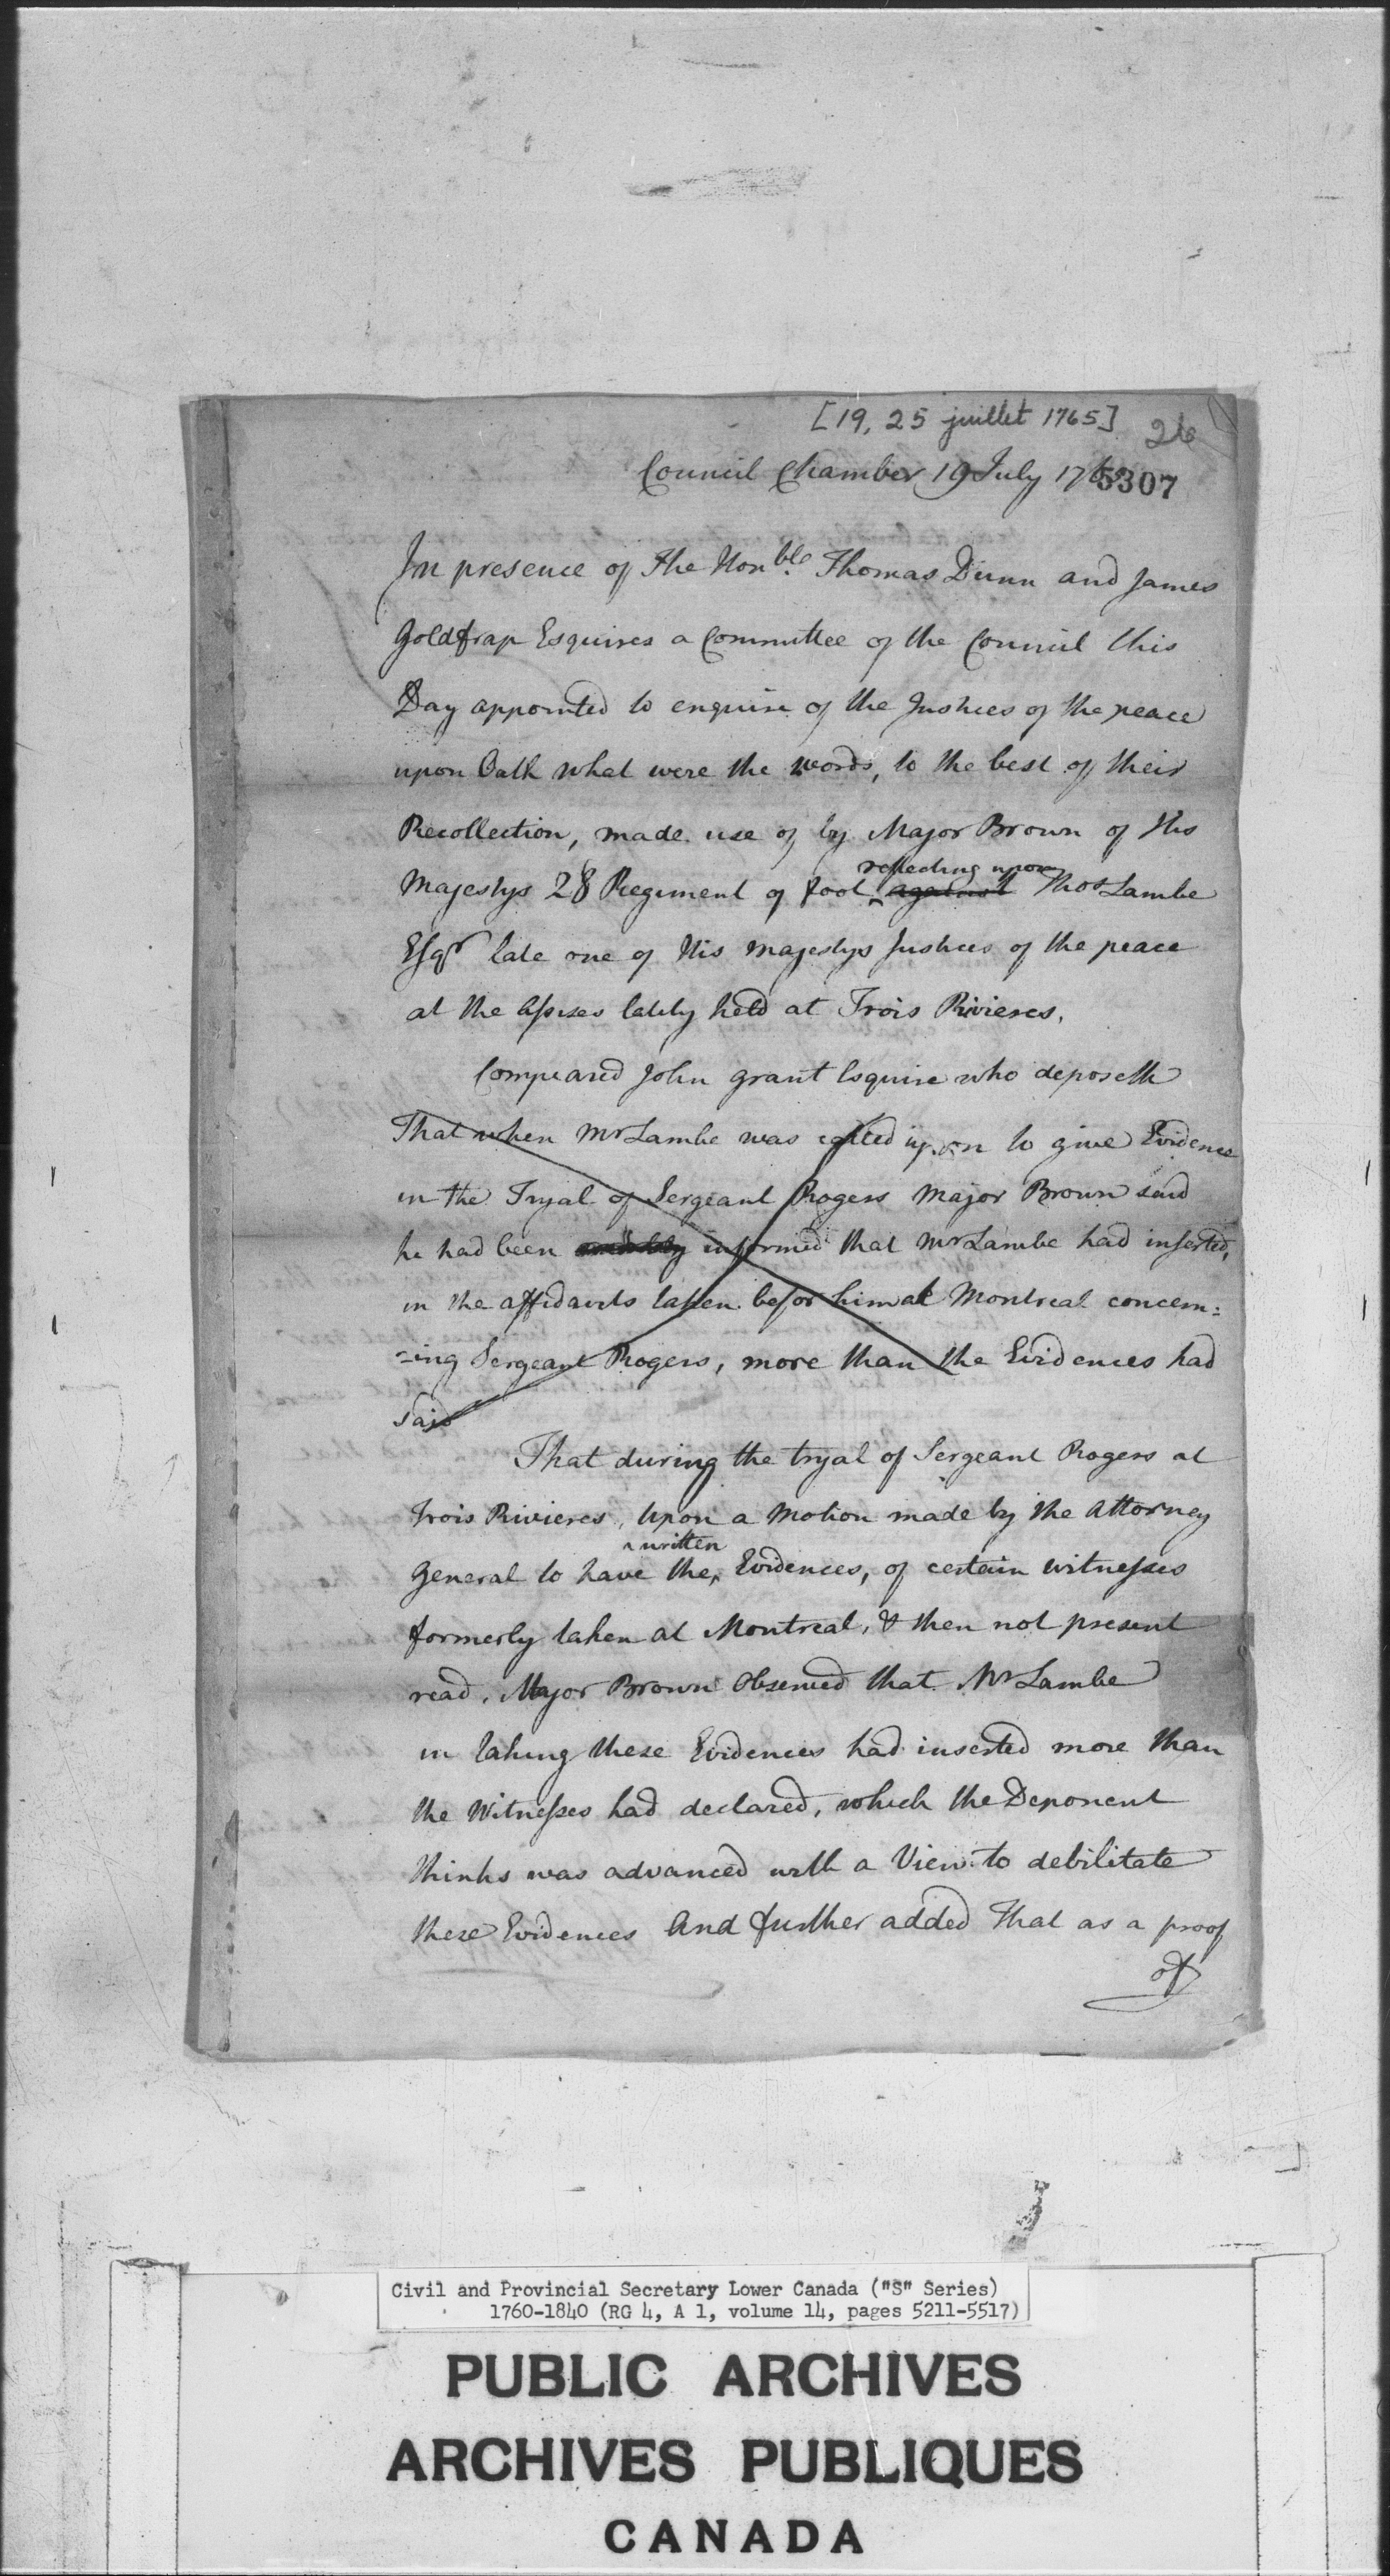 [19, 25 juillet 1765]
26
Council Chamber 19 July 176
5307
In presence of The Honble Thomas Dunn and James
Goldfrap Esquires a Committee of the Council this
Day appointed to enquire of the Justices of the peace
upon Oath what were the words, to the best of their
Recollection, made use of by Major Brown of His
reflecting upon
Majestys 28 Regiment of foot ‸ against Thos Lambe
Esqr late one of His Majestys Justices of the peace
at the Assizes lately held at Trois Rivieres.
Compeared John Grant Esquire who deposeth
That when Mr Lambe was called upon to give Evidence
in the Tryal of Sergeant Rogers Major Brown said
he had been informed that Mr Lambe had inserted,
in the affidavits taken befor him at Montreal concern=
=ing Sergeant Rogers, more than the Evidences had
said
That during the tryal of Sergeant Rogers at
Trois Rivieres, Upon a Motion made by the Attorney
written
General to have the ‸ Evidences, of certain witnesses
formerly taken at Montreal, & then not present
read, Major Brown Observed that Mr Lambe
in taking these Evidences had inserted more than
the Witnesses had declared, which the Deponent
thinks was advanced with a View to debilitate
these Evidences And further added That as a proof
of
Civil and Provincial Secretary Lower Canada ("S" Series)
1760-1840 (RG 4, A 1, volume 14, pages 5211-5517)
PUBLIC ARCHIVES
ARCHIVES PUBLIQUES
CANADA